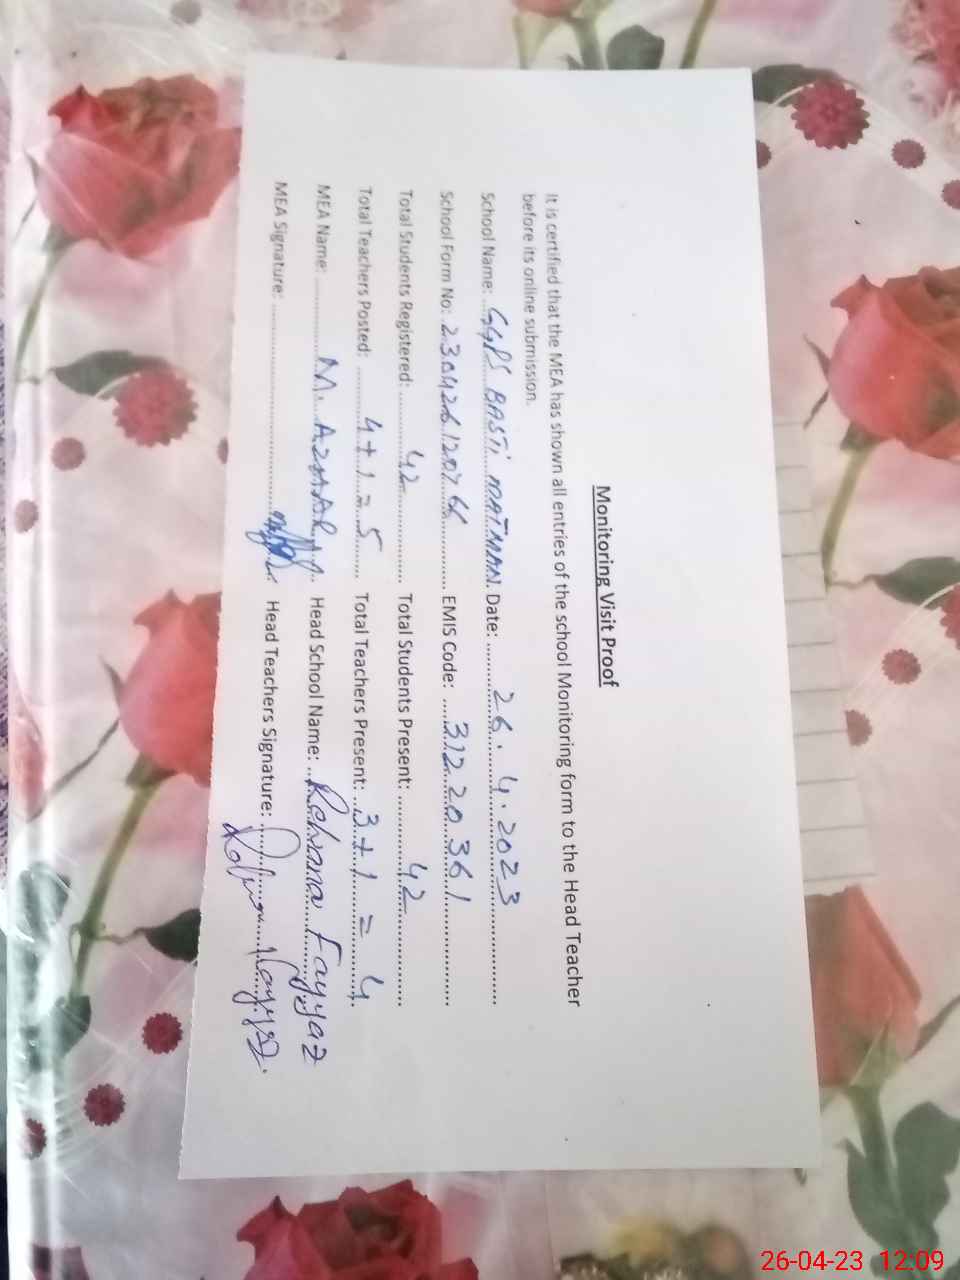 Monitoring Visit Proof
It is certified that the MEA has shown all entries of the school Monitoring form to the Head Teacher
before its online submission.
School Name: GGPS BASTi MATMAN Date: 26.4.2023
School Form No: EMIS Code: 31220361
Total Students Registered: 42 Total Students Present: 42
Total Teachers Posted: 4+1=5 Total Teachers Present: 3+1=4
MEA Name: M. AZHAR Head School Name: Rehana Fayyaz
MEA Signature: Head Teachers Signature:
26-04-23 12:09